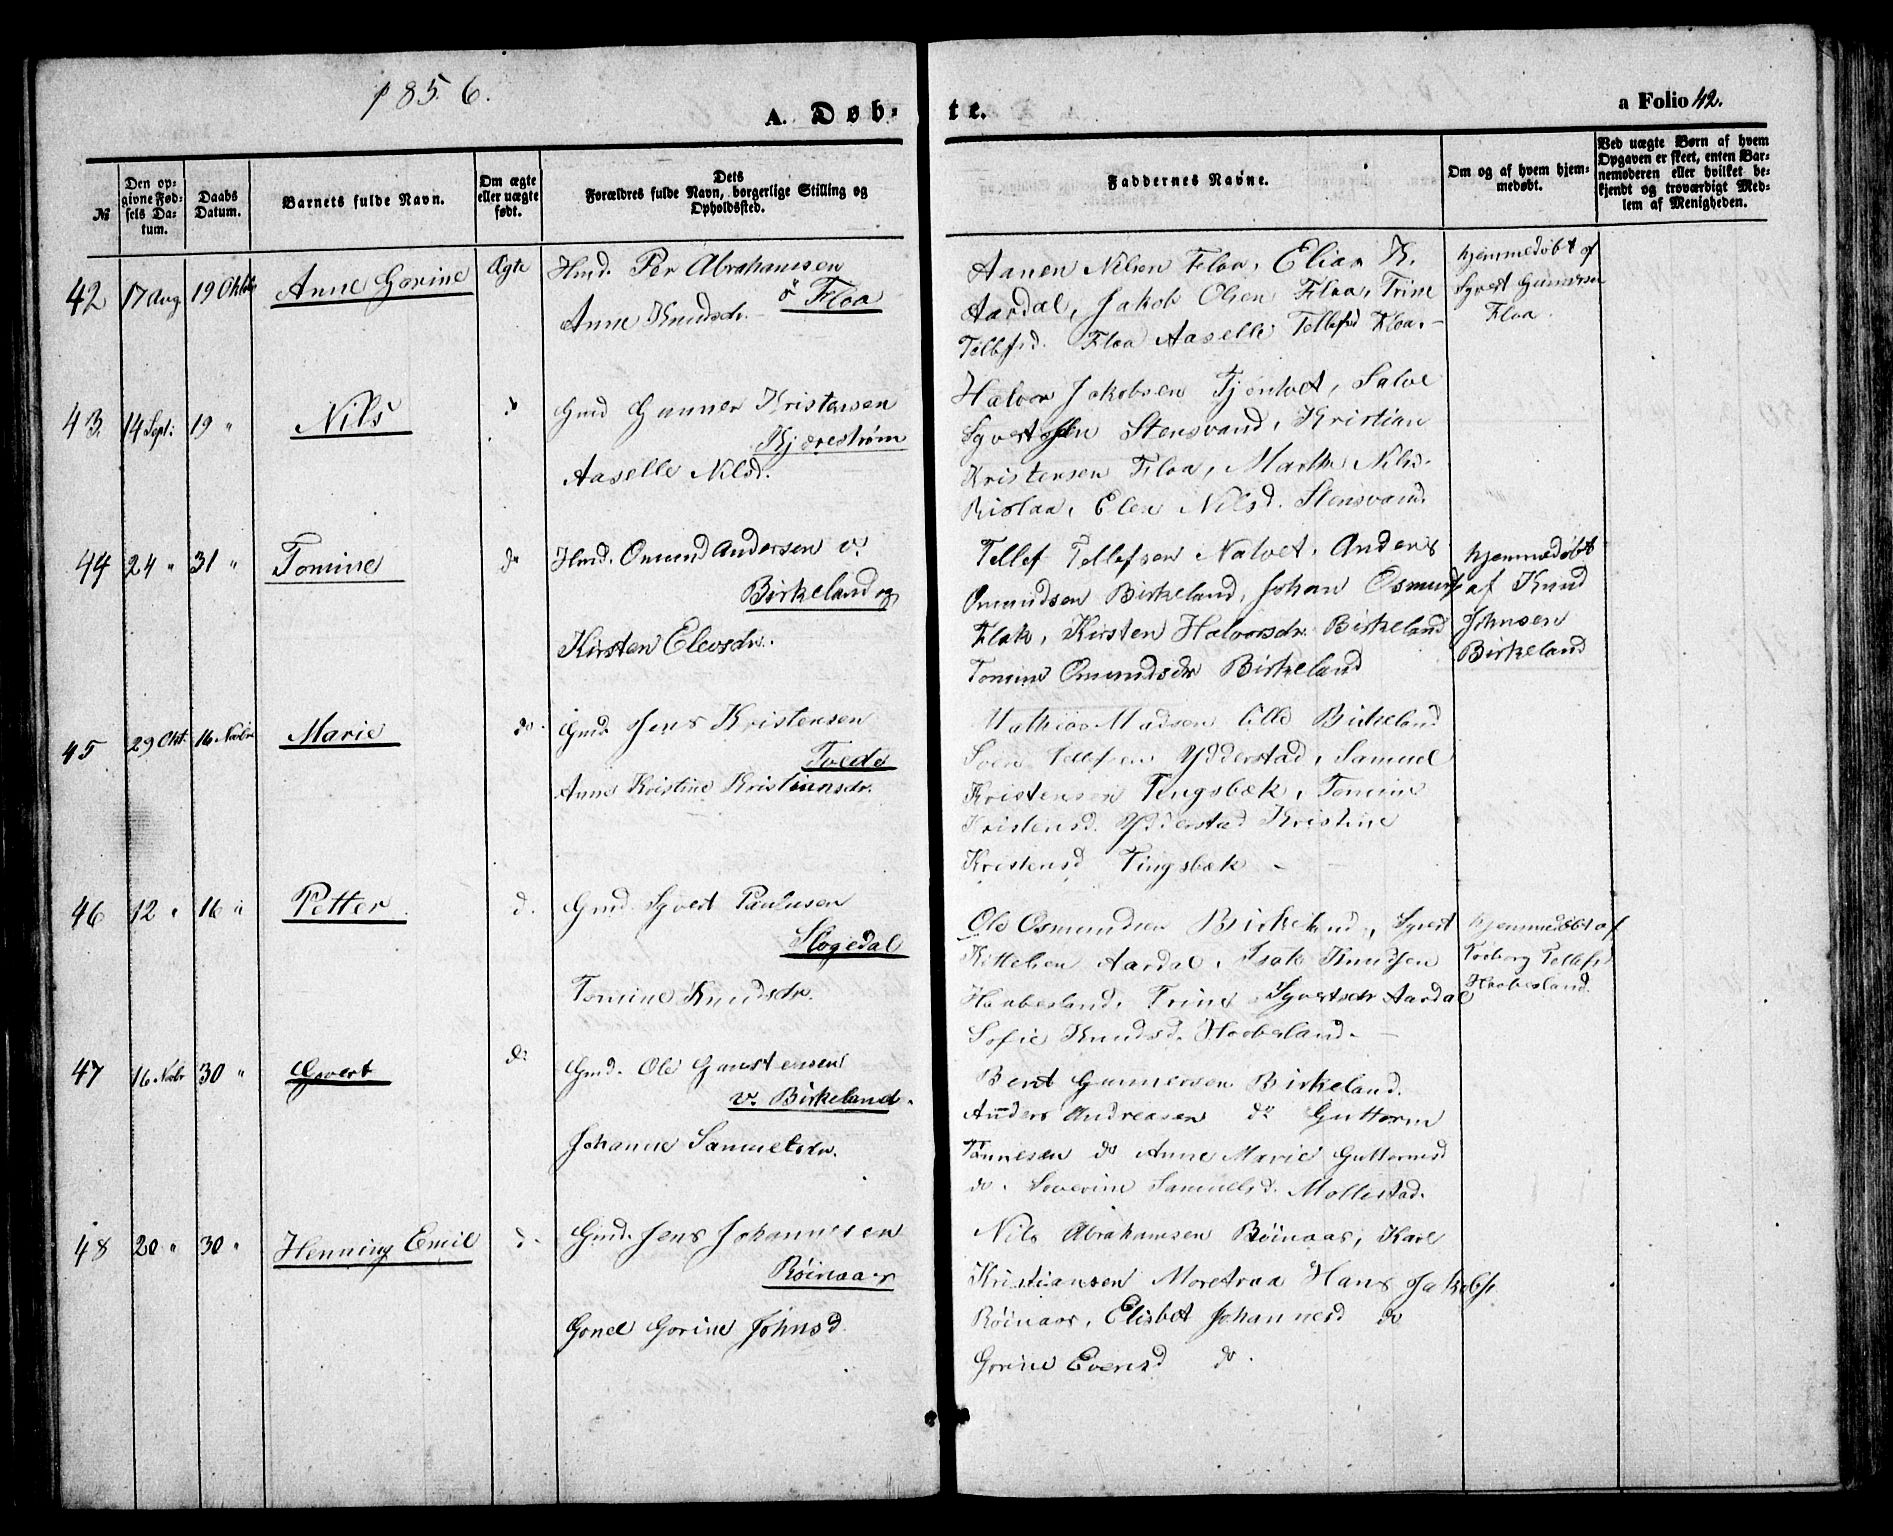 1856.
A. Døb-
te.
a Folio 42.
№
Den op-
givne Fød-
sels Da-
tum.
Daabs
Datum.
Barnets fulde Navn.
Om ægte
eller uægte
født.
Dets
Forældres fulde Navn, borgerlige Stilling og
Opholdssted.
Faddernes Navne.
Om og af hvem hjem-
medøbt.
Ved uægte Børn af hvem
Opgaven er skeet, enten Bar-
nemoderen eller hvilket be-
kjendt og troværdigt Med-
lem af Menigheden.
42 17 Aug 19 Oktbr Anne Gorine Ægte
Hmd. Per Abrahamsen
ö Floa
Anne Knudsdr.
Aanen Nilsen Floa, Elias K.
Aardal, Jakob Olsen Floa, Trine
Tellefsd. Floa Aaselle Tellefsd Floa.
hjemmedøbt af
Sÿvert Gunnersen
Floa.
43. 14 Sept: 19 " Nils do
Gmd Gunner Kristensen
Kjærestrøm
Aaselle Nilsd.
Halvor Jakobsen Tjønlvet, Salve
Syvertsen Stensvand, Kristian
Kristensen Floa, Marthe Nilsd.
Rislaa, Elen Nilsd. Stensvand.
44 24 " 31 " Tomine do
Hmd. Omund Andersen v.
Birkeland og
Kirsten Elevsdr.
Tellef Tellefsen Natvet, Anders
Omundsen Birkeland, Johan Osmunds.
Flak, Kirsten Halvorsdr. Birkeland
Tomine Omundsdr Birkeland
hjemmedøbt
af Knud
Johnsen
Birkeland
45 29 Okt. 16 Novbr Marie do.
Gmd. Jens Kristensen
Tvede
Anne Kristine Kristiansdr.
Mathias Madsen lille Birkeland
Sven Tellefsen Ydderstad, Samuel
Kristensen Tingsbæk, Tomine
Kristensd. Ydderstad Kristine
Kristensd Tingsbæk
46 12 " 16 " Petter d.
Gmd. Syvert Paulusen
Slogedal
Tomine Knudsdr.
Ole Osmundsen Birkeland, Syvert
Kittelsen Aardal, Isak Knudsen
Haabesland, Trine Syvertsdr Aardal
Sofie Knudsd. Haabesland.
hjemmedøbt af
Torborg Tellefsd
Haabesland.
47 16 Novbr 30 " Govert do
Gmd. Ole Gunstensen
v. Birkeland.
Johanne Samuelsdr.
Bent Gunnersen Birkeland.
Anders Andreasen do Guttorm
Tønnesen do Anne Marie Guttormsd
do. Severine Samuelsd. Mollestad.
48 20 " 30 " Henning Emil d.
Gmd. Jens Johannesen
Röinaas
Gonel Gorine Johnsd.
Nils Abrahamsen Röinaas, Karl
Kristiansen Moretraa Hans Jakobs.
Röinaas, Elisbet Johannesd do
Gorine Evensd do.